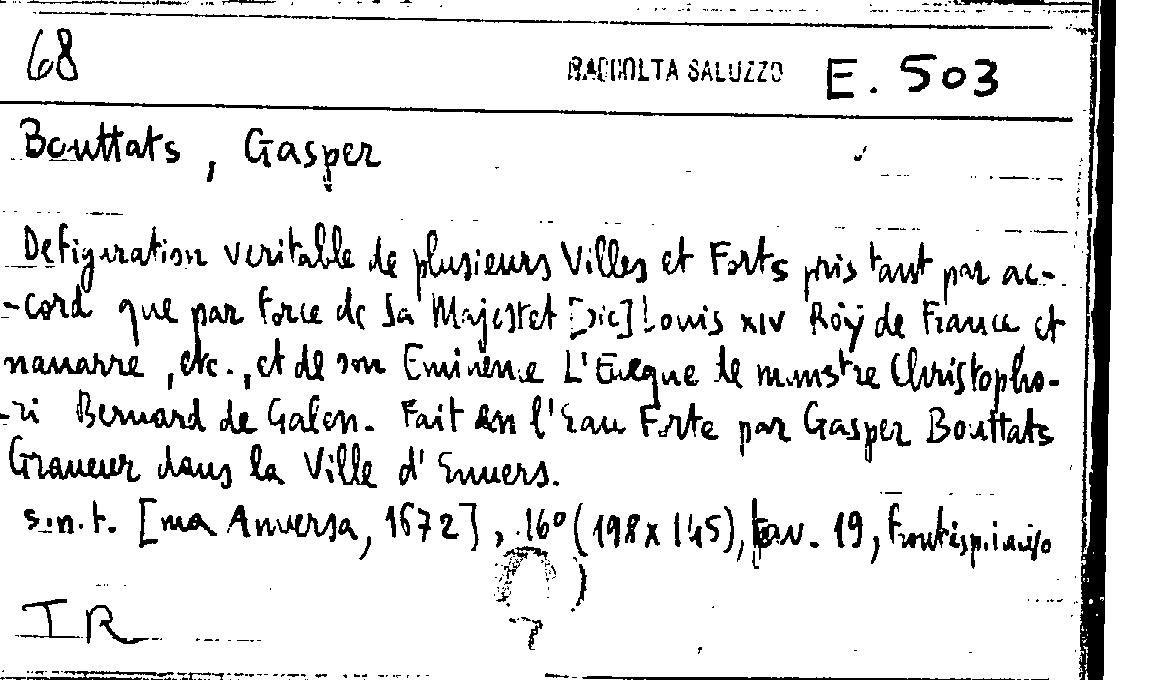 68 RACCOLTA SALUZZO E. 503
Bouttats, Gasper
Defiguration veritable de plusieurs Villes et Forts pris tant par ac-
-cord que par force de Sa Majestet [sic] Louis XIV Roÿ de France et
nauarre, etc., et de son Eminence L'Eueque de munstre Christopho-
-ri Bernard de Galen. Fait en l'Eau Forte par Gasper Bouttats
Graueur dans la Ville d'Enuers.
s.n.t. [ma Anversa, 1672], 16° (198x145), tav. 19, frontispizio
IR